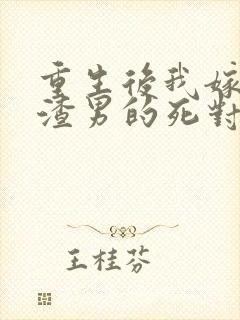 重生後我嫁
渣男的死對
王桂芬